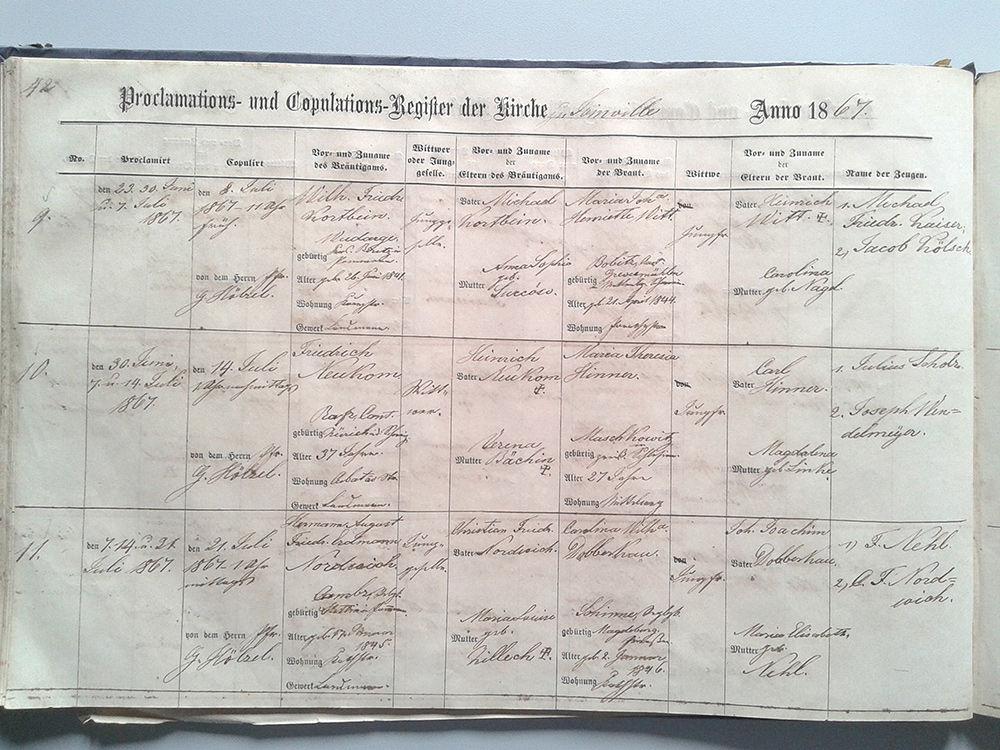 42
Proclamations- und Copulations-Register der Kirche zu Joinville Anno 1867.
No. Proclamirt Copulirt Vor- und Zuname des Bräutigams. Wittwer oder Junggeselle. Vor- und Zuname der Eltern des Bräutigams. Vor- und Zuname der Braut. Wittwe Vor- und Zuname der Eltern der Braut. Name der Zeugen.
9.
den 23. 30. Juni
u. 7. Juli
1867.
den 8. Juli
1867. 11 Uhr
früh.
von dem Herrn Pfr.
G. Hölzel.
Wilh. Friedr.
Kortbein.
gebürtig
Alter geb. 26 Juni 1841.
Wohnung
Gewerk Landmann.
Jungg-
selle.
Vater Michael
Kortbein.
Anna Sophie
Mutter geb.
Surcow.
Maria Joha
Henriette Witt
gebürtig
Alter geb. 21. April 1844.
Wohnung
von
Jungfr.
Vater Heinrich
Witt. ✝.
Carolina
Mutter geb. Nagel.
1. Michael
Friedr. Kaiser.
2, Jacob Kölsch
10.
den 30. Juni,
7. u. 14. Juli
1867.
den 14. Juli
1 Uhr nachmittags
von dem Herrn Pfr.
G. Hölzel.
Friedrich
Neukom
Rafz, Cant.
gebürtig Zürich
Alter 37 Jahre.
Wohnung
Gewerk Landmann.
Witt-
wer.
Heinrich
Vater Neukom
✝.
Verena
Mutter Bächin
✝.
Maria Theresia
Hinner.
Maschkowitz
gebürtig
Alter 27 Jahr
Wohnung Mittelweg
von
Jungfr.
Carl
Vater Hinner.
Magdalena
Mutter geb. Linke
1. Julius Scholz.
2. Joseph Win-
delmeyer.
11.
den 7. 14. u. 21.
Juli 1867.
den 21. Juli
1867. 1 Uhr
mittags
von dem Herrn Pfr.
G. Hölzel.
Hermann August
Friedr. Erdmann
Nordwich.
gebürtig
Alter geb.
1845.
Wohnung
Gewerk Landmann.
Jungg-
selle.
Christian Friedr.
Vater Nordwich.
Maria Louise
Mutter geb.
Zillech ✝.
Carolina Wilha
Dobberkau.
gebürtig Magdeburg,
Alter geb. 2. Januar
1846.
Wohnung
von
Jungfr.
Joh. Joachim
Vater Dobberkau,
Maria Elisabeth,
Mutter geb.
Nehl.
1) F. Nehl.
2, C. F. Nord=
wich.